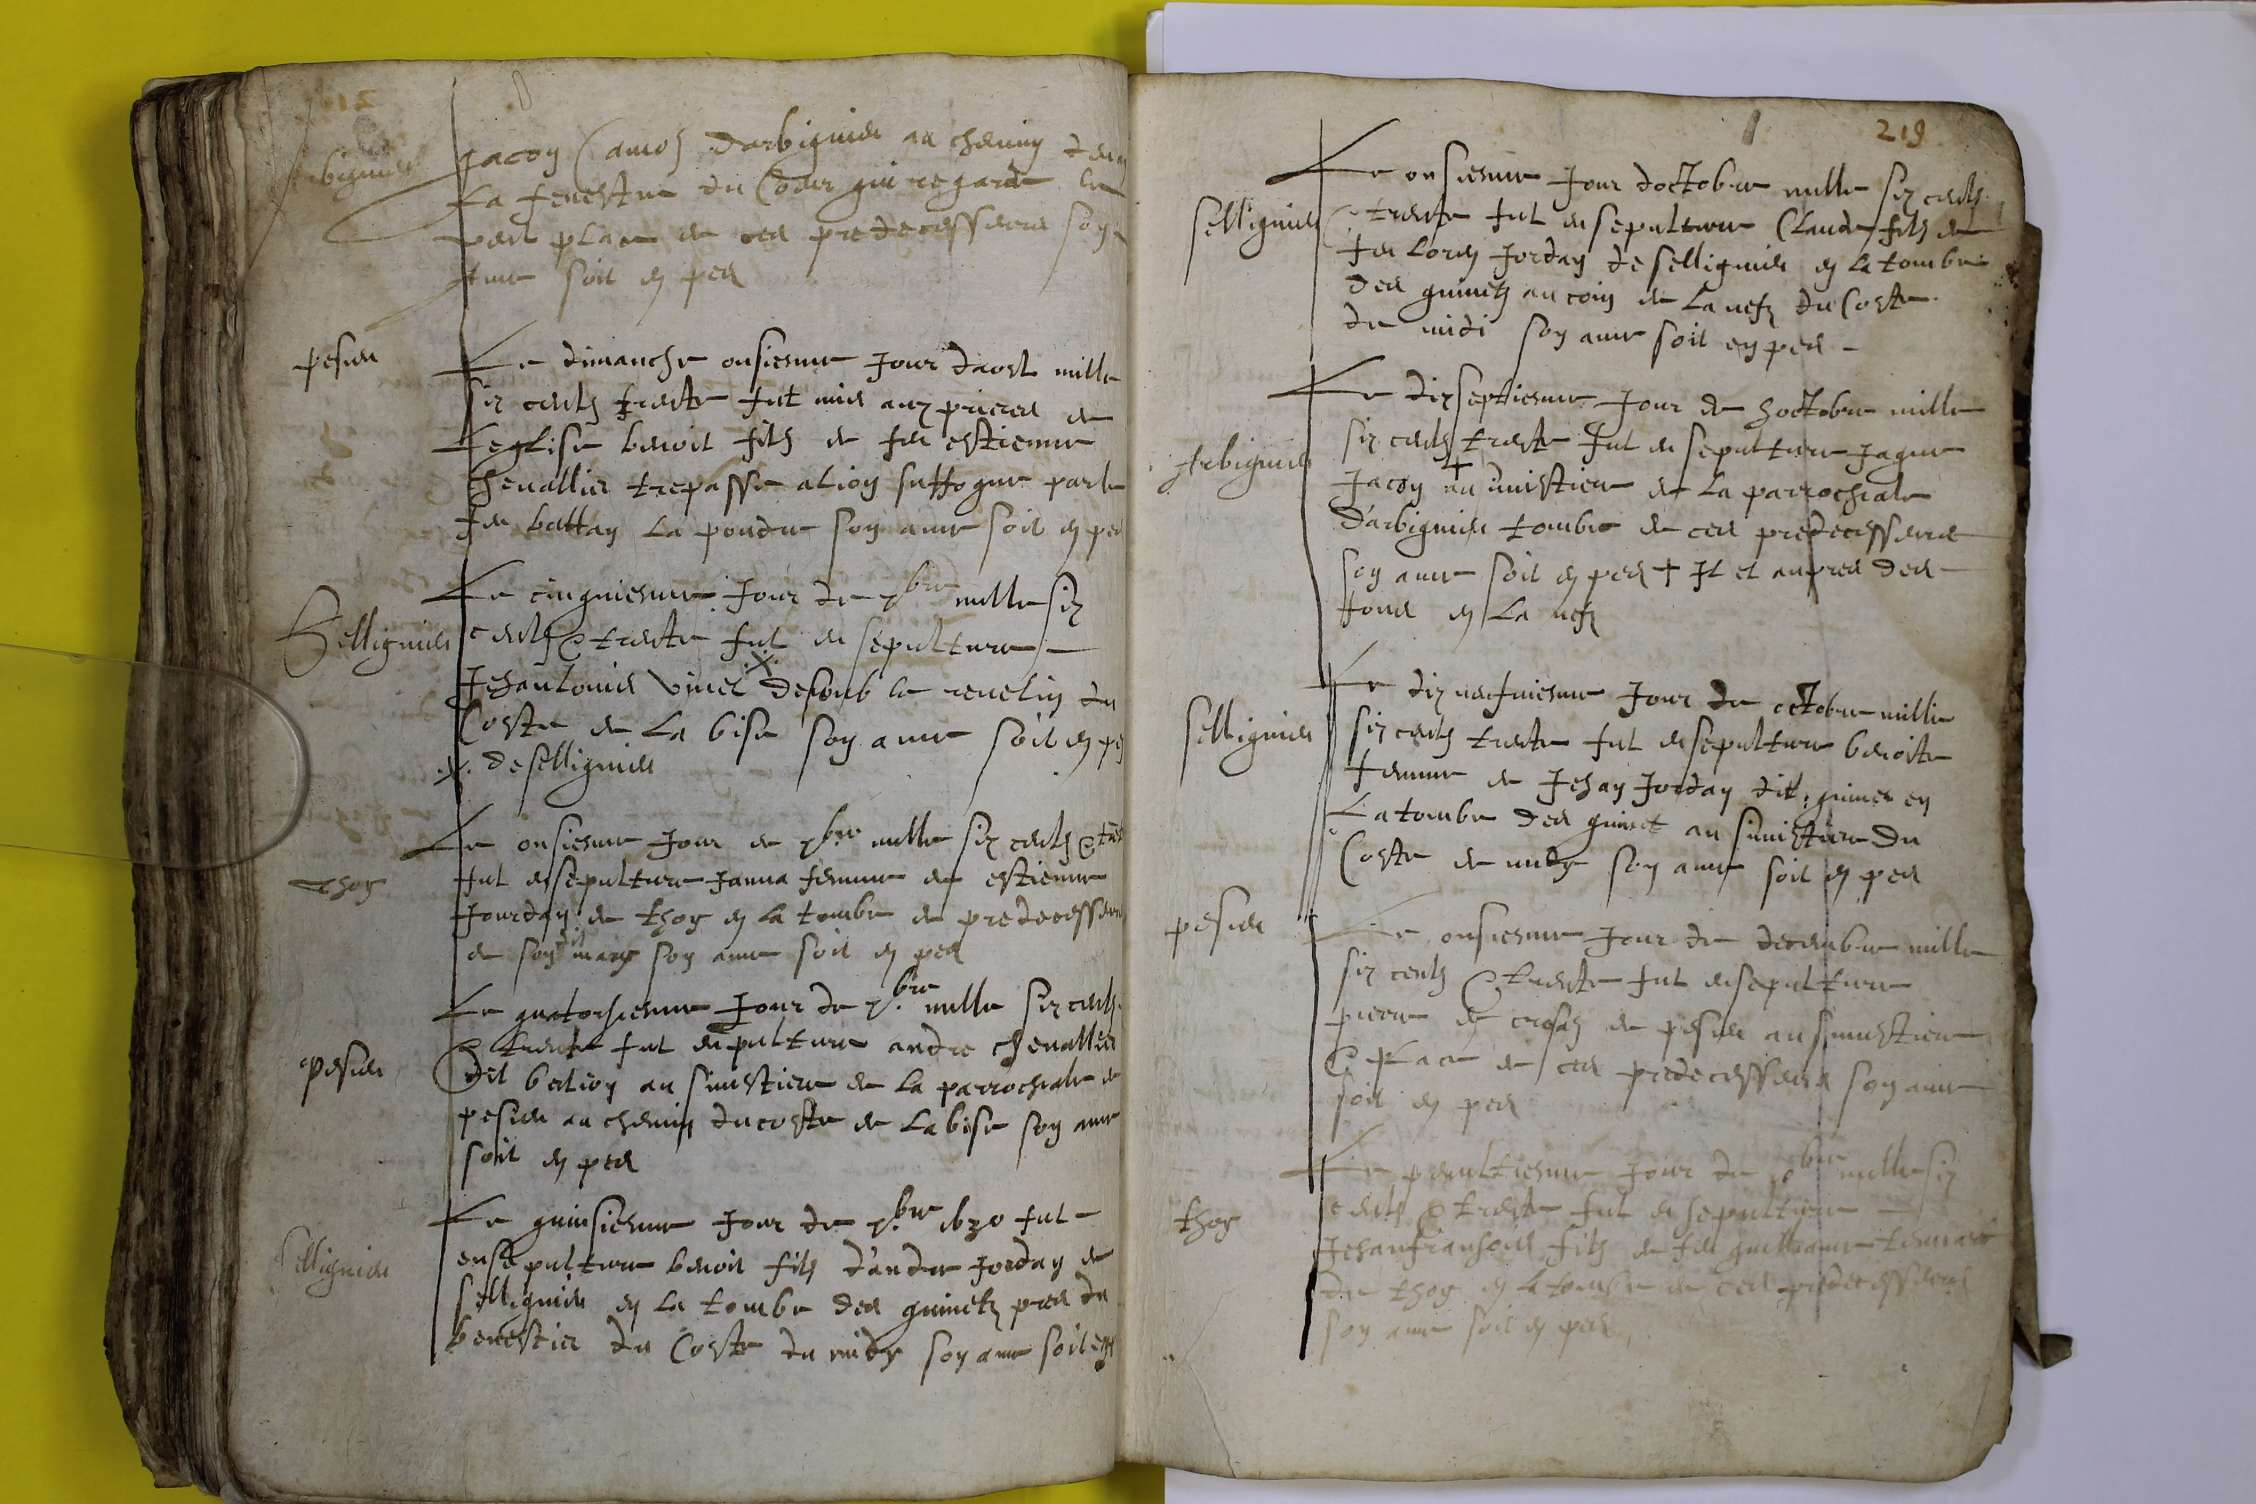 Arbignieu
Jacoy Camoz darbignieu au chemin
La fenestre du Coeur qui regarde le
vent place de ces predecesseurs soy
ame soit en pes
pesieu
Le dimanche onsiesme Jour daost mille
six centz trente fut mis aux prieres de
Leglise benoit filz de feu estienne
Chevallier trepasse a lion suffoque par le
feu battan la poudre soy ame soit en pes
Sellignieu
Le cinquiesme Jour de 7bre mille six
centz & trente fut en sepulture
Jehanlouis vinet .x. desoub le revelin du
Coste de La bise soy ame soit en pes
.x. de sellignieu
thoy
Le onsiesme Jour de 7bre mille six centz &
fut ensepulture Janna femme de estienne
Jourday de thoy en la tombe de predecesseurs
de soy dit mary soy ame soit en pes
pesieu
Le quatorziesme Jour de 7.bre mille six centz
& trente fut enpulture andre chevallier
dit bertioy au simistiere de la parrochiale de
pesieu au chemin du coste de La bise soy ame
soit en pes
Sellignieu
Le quinsiesme Jour de 7.bre 1630 fut
ensepulture benoit filz d'andre Jorday de
sellignieu en la tombe des guinetz pres du
benestier du Coste du midy soy ame soit en
219
Le onsiesme Jour doctobre mille six centz
sellignieu
& trente fut ensepulture Claude filz de
feu Lorens Jorday de sellignieu en la tombe
des guinetz au coin de La nefz du Coste
du midi soy ame soit en pes
Le dixseptiesme Jour de hoctobre mille
Arbignieu
six centz trente fut en sepulture Jaque
Jacoy + au simistiere de La parrochiale
d'arbignieu tombe de ces predecesseurs
soy ame soit en pes + It et aupres des
fons en La nefz
Le dix neufviesme Jour de octobre mille
sellignieu
six centz trente fut ensepulture benoite
femme de Jehan Jorday dit guinet en
La tombe des guinet au simistiere du
Coste de midy soy ame soit en pes
pesieu
Le onsiesme Jour de decembre mille
six centz & trente fut ensepulture
pierre de crosaz de pesieu au simistiere
& place de ces predecesseurs soy ame
soit en pes
Le penultiesme Jour de bre mille six
thoy
centz & trente fut en sepulture
Jehanfransois filz de feu guilliaume
de thoy en la tombe de ces predecesseurs
soy ame soit en pes